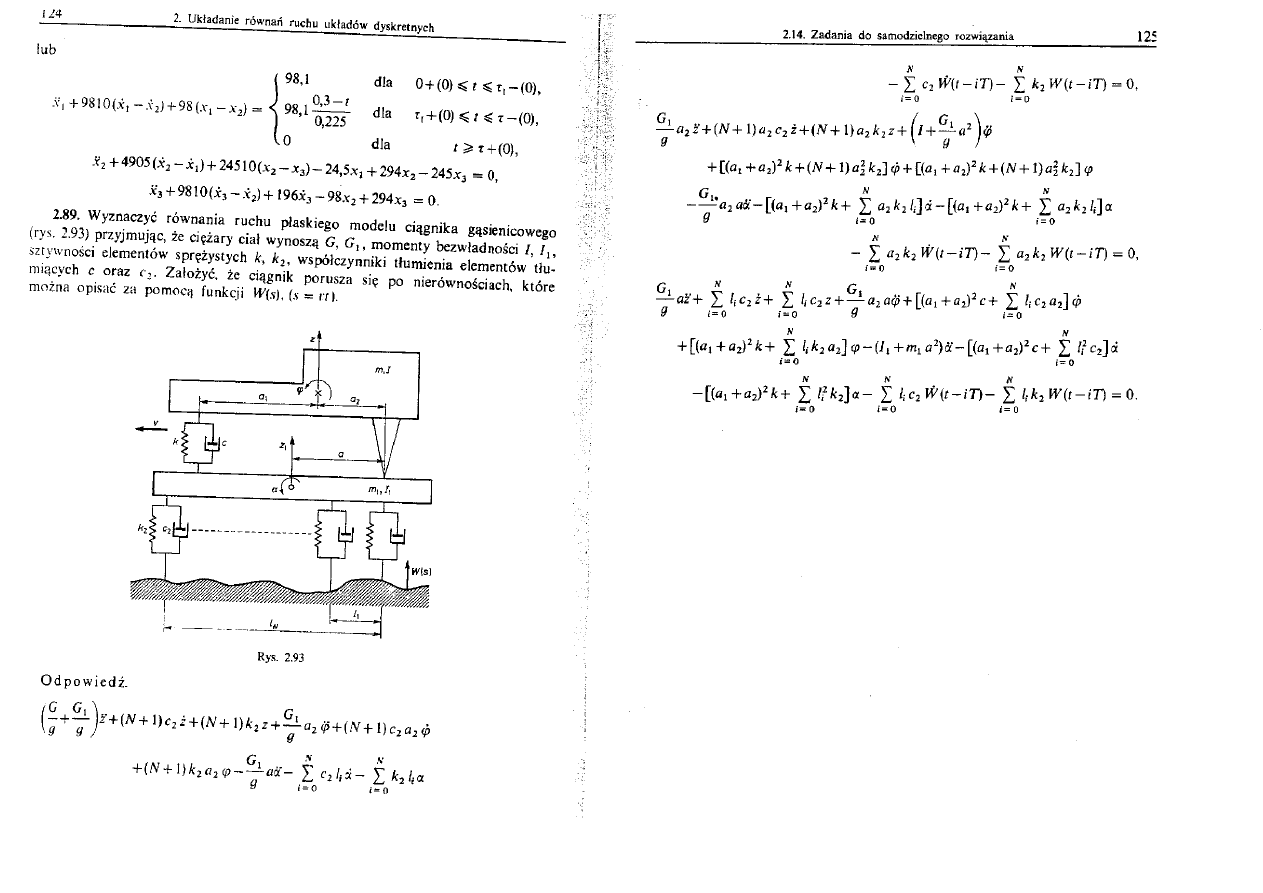 124
2. Układanie równań ruchu układów dyskretnych
lub
ẍ₁ + 9810(ẋ₁ − ẋ₂) + 98(x₁ − x₂) = { 98,1 dla 0+(0) ⩽ t ⩽ τ₁−(0),
98,1 (0,3−t)/0,225 dla τ₁+(0) ⩽ t ⩽ τ−(0),
0 dla t ⩾ τ+(0),
ẍ₂ + 4905(ẋ₂ − ẋ₁) + 24510(x₂ − x₃) − 24,5x₁ + 294x₂ − 245x₃ = 0,
ẍ₃ + 9810(ẋ₃ − ẋ₂) + 196ẋ₃ − 98x₂ + 294x₃ = 0.
2.89. Wyznaczyć równania ruchu płaskiego modelu ciągnika gąsienicowego
(rys. 2.93) przyjmując, że ciężary ciał wynoszą G, G₁, momenty bezwładności I, I₁,
sztywności elementów sprężystych k, k₂, współczynniki tłumienia elementów tłu-
miących c oraz c₂. Założyć, że ciągnik porusza się po nierównościach, które
można opisać za pomocą funkcji W(s), (s = vt).
z
m,J
φ
a₁
a₂
v
k
c
z₁
a
α
m₁, I₁
k₂
c₂
W(s)
l₁
l_N
Rys. 2.93
Odpowiedź.
(G/g + G₁/g) z̈ + (N+1)c₂ż + (N+1)k₂z + G₁/g a₂φ̈ + (N+1)c₂a₂φ̇
+(N+1)k₂a₂φ − G₁/g aα̈ − ∑_{i=0}^{N} c₂lᵢα̇ − ∑_{i=0}^{N} k₂lᵢα
2.14. Zadania do samodzielnego rozwiązania
125
− ∑_{i=0}^{N} c₂Ẇ(t−iT) − ∑_{i=0}^{N} k₂W(t−iT) = 0,
G₁/g a₂z̈ + (N+1)a₂c₂ż + (N+1)a₂k₂z + (I + G₁/g a²)φ̈
+[(a₁+a₂)²k + (N+1)a₂²k₂]φ̇ + [(a₁+a₂)²k + (N+1)a₂²k₂]φ
−G₁/g a₂aα̈ − [(a₁+a₂)²k + ∑_{i=0}^{N} a₂k₂lᵢ]α̇ − [(a₁+a₂)²k + ∑_{i=0}^{N} a₂k₂lᵢ]α
− ∑_{i=0}^{N} a₂k₂Ẇ(t−iT) − ∑_{i=0}^{N} a₂k₂W(t−iT) = 0,
G₁/g az̈ + ∑_{i=0}^{N} lᵢc₂ż + ∑_{i=0}^{N} lᵢc₂z + G₁/g a₂aφ̈ + [(a₁+a₂)²c + ∑_{i=0}^{N} lᵢc₂a₂]φ̇
+[(a₁+a₂)²k + ∑_{i=0}^{N} lᵢk₂a₂]φ − (I₁+m₁a²)α̈ − [(a₁+a₂)²c + ∑_{i=0}^{N} lᵢ²c₂]α̇
−[(a₁+a₂)²k + ∑_{i=0}^{N} lᵢ²k₂]α − ∑_{i=0}^{N} lᵢc₂Ẇ(t−iT) − ∑_{i=0}^{N} lᵢk₂W(t−iT) = 0.